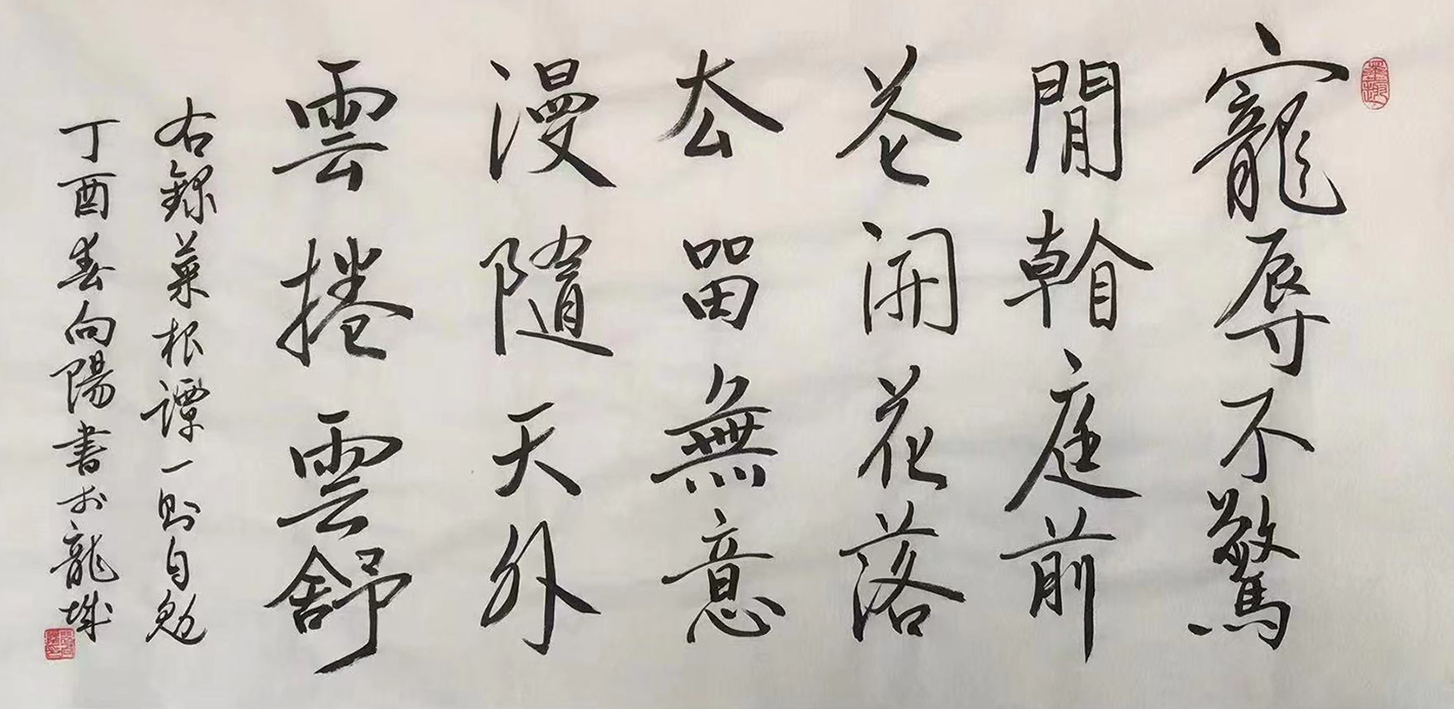 寵辱不驚
閒看庭前
花開花落
厺留無意
漫隨天外
雲捲雲舒
右錄菜根譚一則自勉
丁酉春向陽書於龍城